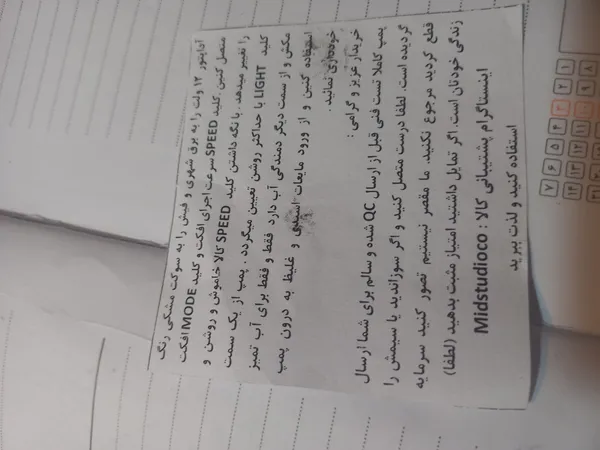 آداپتور ۱۲ ولت را به برق شهری و فیش را به سوکت مشکی رنگ
متصل کنین. کلید SPEED سرعت اجرای افکت و کلید MODE افکت
را تغییر میدهد. با نگه داشتن کلید SPEED کالا خاموش و روشن و
کلید LIGHT با حداکثر روشن تعیین میگردد. پمپ از یک سمت
مکش و از سمت دیگر دمندگی آب دارد فقط و فقط برای آب تمیز
استفاده کنین و از ورود مایعات اسیدی و غلیظ به درون پمپ
خودداری نمائید.
خریدار عزیز و گرامی :
پمپ کاملا تست فنی قبل از ارسال QC شده و سالم برای شما ارسال
گردیده است. لطفا درست متصل کنید و اگر سوزاندید یا سیمش را
قطع کردید مرجوع نکنید، ما مقصر نیستیم تصور کنید سرمایه
زندگی خودتان است. اگر تمایل داشتید امتیاز مثبت بدهید (لطفا)
اینستاگرام پشتیبانی کالا : Midstudioco
استفاده کنید و لذت ببرید
۱ ۲ ۳ ۴ ۵ ۶ ۷
۸ ۹ ۱۰ ۱۱ ۱۲ ۱۳ ۱۴